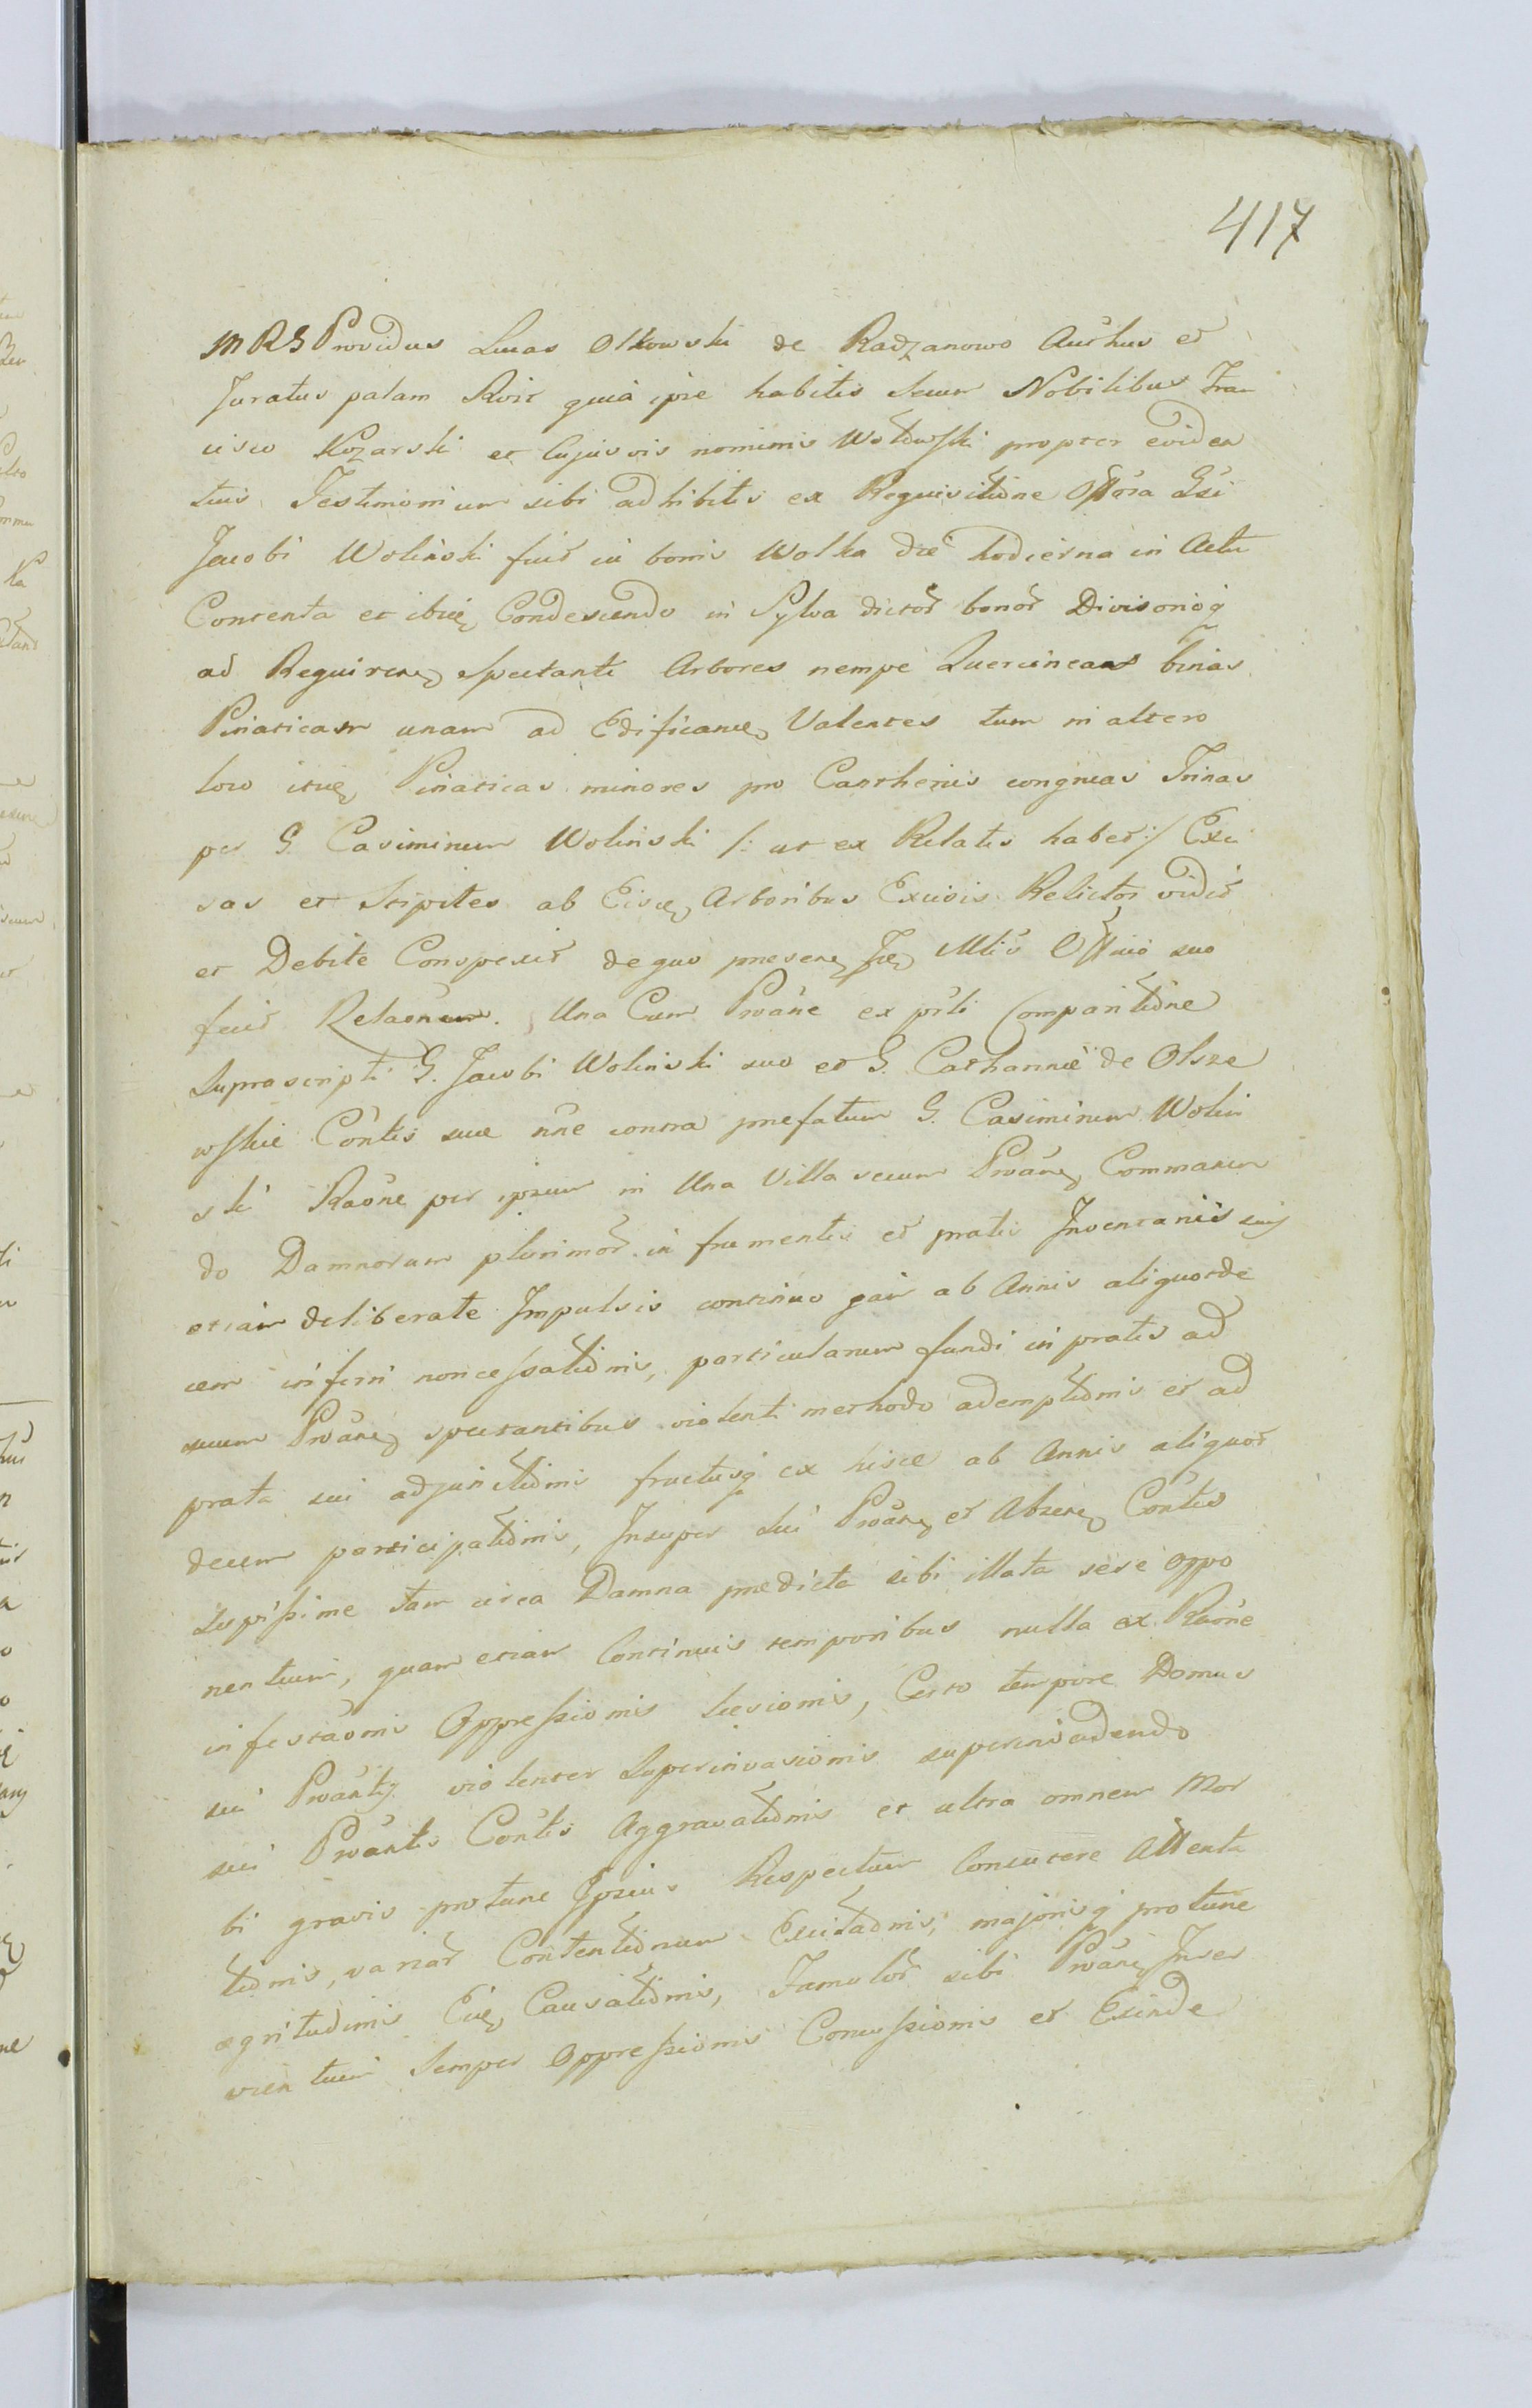 417
MRS Providus Lucas Olkowski de Radzanowo Authus et
Juratus palam Rvit quia ipse habitis Secum Nobilibus Fran
cisco Kozarski et Cujusvis nominis Wolowski propter eviden
tius Testimonium sibi adhibitis ex Requisitione Offosa Gsi
Jacobi Wolinski fuit in bonis Wolka die hodierna in Actu
Contenta et ibiq Condescendo in Sylva dictor bonor Divisorioq
ad Requiren spectanti Arbores nempe Quercineas binas
Pinaticam unam ad Edificand Valentes tum in altero
loco itid Pinaticas minores pro Cantheriis congruas Trinas
per G. Casimirum Wolinski /: ut ex Relatis habet :/ Exci
sas et Stipites ab Eisd Arboribus Excisis Relictos vidit
et Debite Conspexit de quo presen Jud Mlis Officio suo
fecit Relaonem. Una Cum Proane ex prti Comparitione
Suprascripti G. Jacobi Wolinski suo et G. Catharinae de Olsze
wskie Contis suae nne contra prefatum G. Casimirum Wolin
ski Raone per ipsum in Una Villa secum Proan Commanen
do Damnorum plurimor in frumentis et pratis Inventariis suis
etiam deliberate Impulsis continuo jam ab Annis aliquotde
cem inferri noncessationis, particularum fundi in pratis ad
suum Proane spectantibus violenti methodo ademptionis et ad
prata sui adjunctionis fructusq ex hisce ab Annis aliquot
decem participationis, Insuper Sui Proan et Absen Contis
Sepissime tam circa Damna predicta sibi illata sese oppo
nentium, quam etiam Continuis temporibus nulla ex Raone
infestaonis Oppressionis Lesionis, Certo tempore Domus
sui Proantis violenter Superinvasionis superinvadendo
sui Proantis Contis Aggravationis et ultra omnem Mor
bi gravis protunc Ipsius Respectum Concutere Attenta
tionis, variar Contentionum Excitaonis, majorisq protunc
egritudinis Eid Causationis, Famulor sibi Proan Inser
vientium Semper Oppressionis Concussionis et Exinde